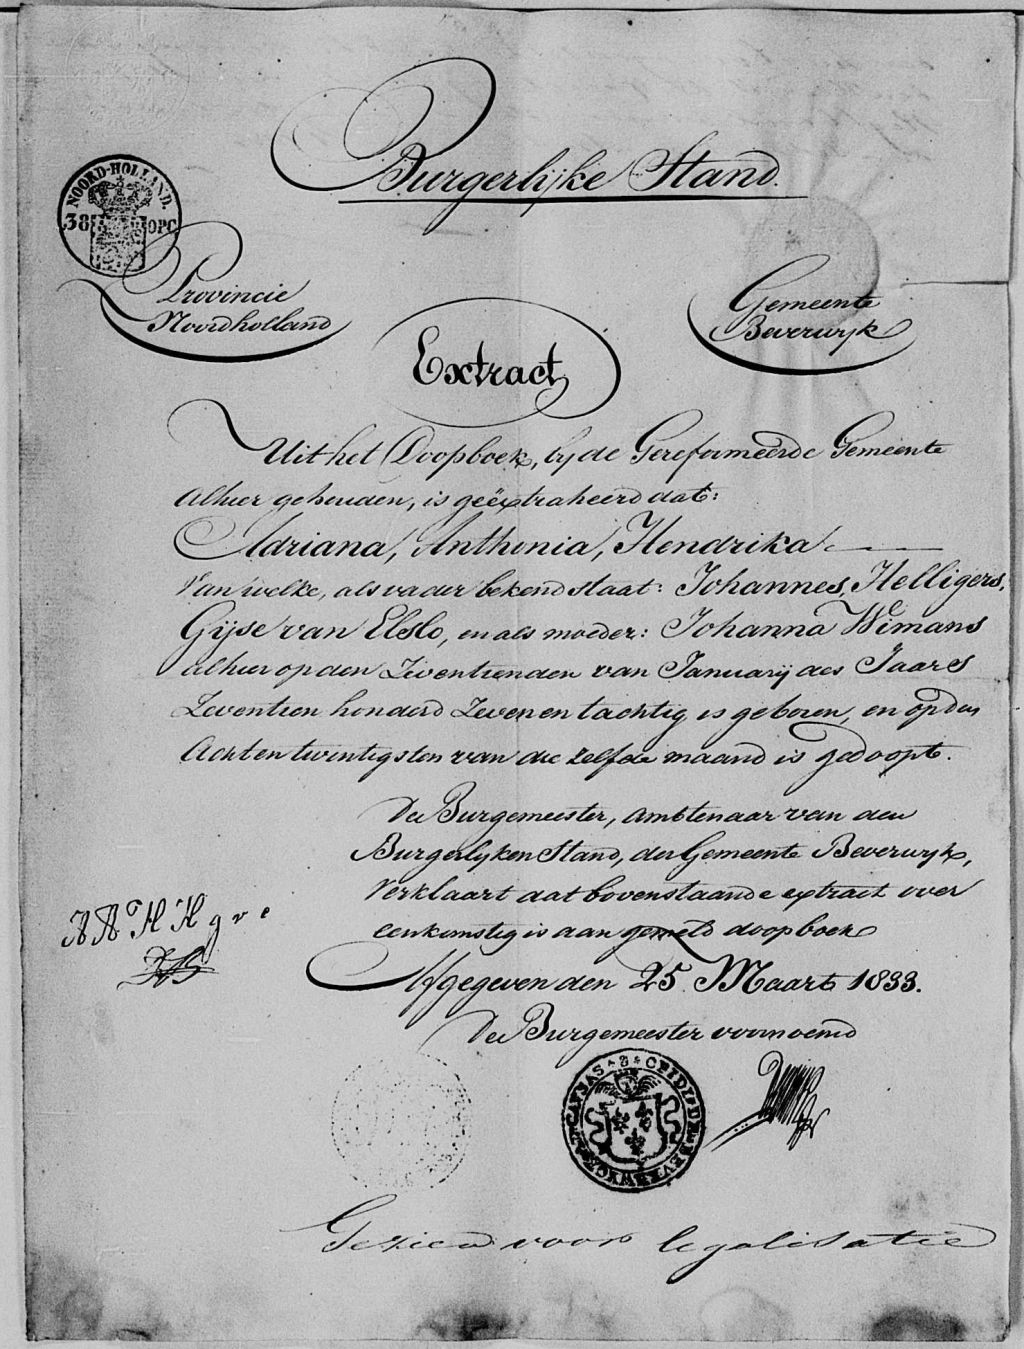 Burgerlijke Stand.
NOORD-HOLLAND.
38 OPC
Provincie
Noordholland
Gemeente
Beverwyk
Extract
Uit het Doopboek, by de Gereformeerde Gemeente
alhier gehouden, is geëxtraheerd dat:
Adriana, Anthonia, Hendrika
Van welke, als vader bekend staat: Johannes, Helligers,
Gijse van Elslo, en als moeder: Johanna Wimans
alhier op den Zeventienden van Januarij des Jaars
Zeventien honderd Zeven en tachtig is geboren, en op den
Acht en twintigsten van die zelfde maand is gedoopt.
De Burgemeester, Ambtenaar van den
Burgerlyken Stand, der Gemeente Beverwyk,
Verklaart dat bovenstaande extract over
eenkomstig is aan gemeld doopboek
A A H H g v e
Afgegeven den 25 Maart 1833.
De Burgemeester voornoemd
Gezien voor legalisatie